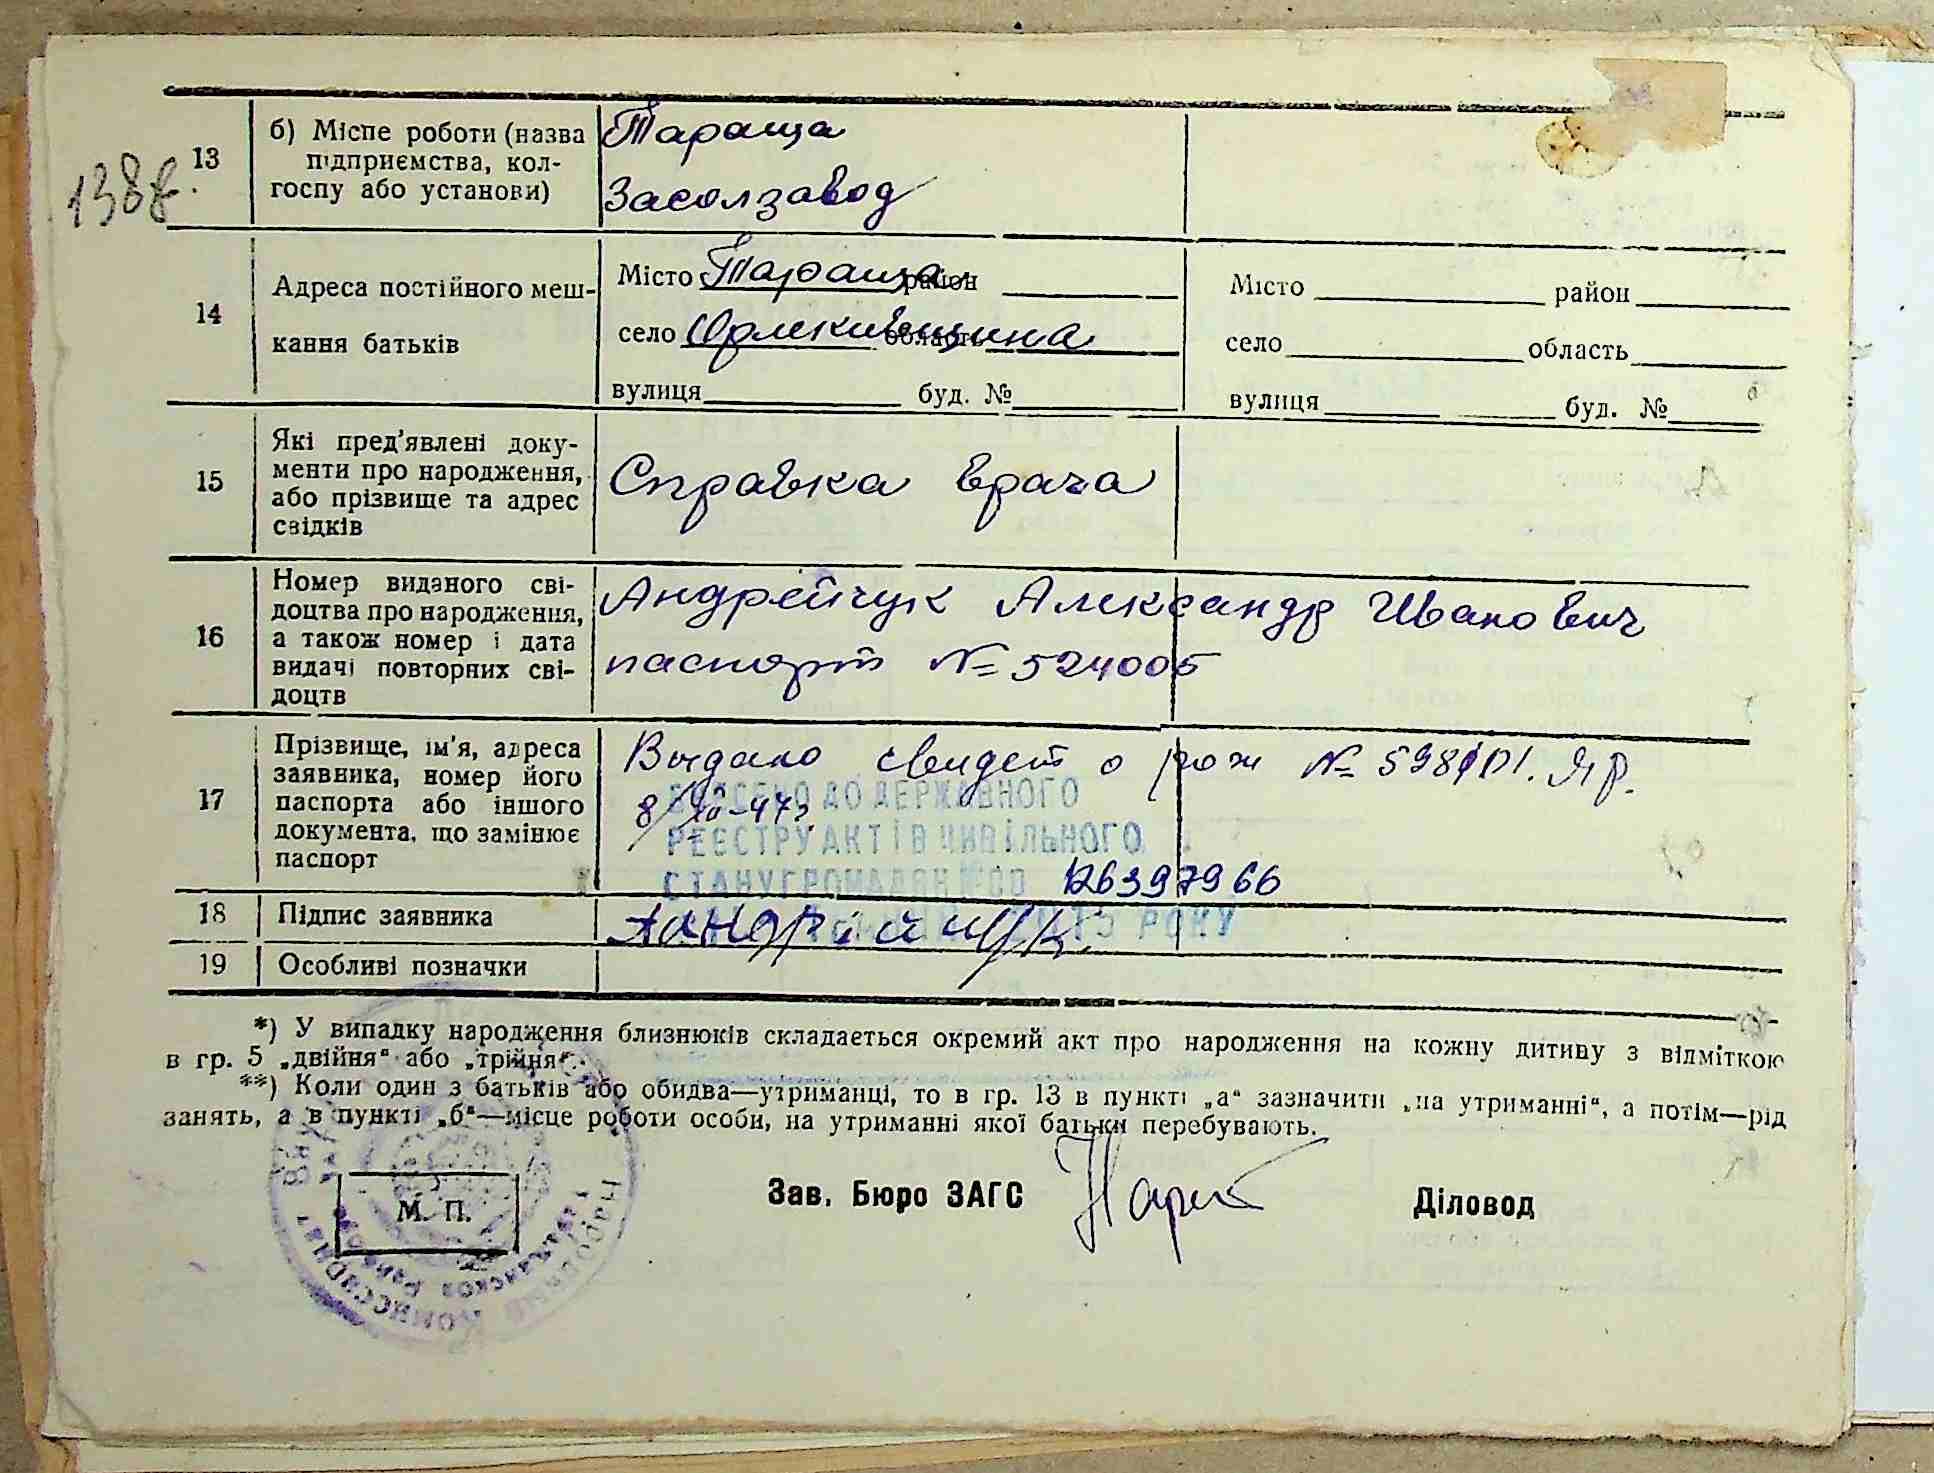 138 г.
13
б) Місце роботи (назва
підприємства, кол-
госпу або установи)
Тараща
Засолзавод
14
Адреса постійного меш-
кання батьків
Місто Тараща район
село область
вулиця буд. №
Місто район
село область
вулиця буд. №
15
Які пред'явлені доку-
менти про народження,
або прізвище та адрес
свідків
Справка врача
16
Номер виданого сві-
доцтва про народження,
а також номер і дата
видачі повторних сві-
доцтв
Андрейчук Александр Иванович
паспорт № 524005
17
Прізвище, ім'я, адреса
заявника, номер його
паспорта або іншого
документа, що замінює
паспорт
Выдано свидет о рож №
ВНЕСЕНО ДО ДЕРЖАВНОГО
РЕЄСТРУ АКТІВ ЦИВІЛЬНОГО
СТАНУ ГРОМАДЯН №00 126397966
РОКУ
18
Підпис заявника
19
Особливі позначки
*) У випадку народження близнюків складається окремий акт про народження на кожну дитину з відміткою
в гр. 5 „двійня“ або „трійня“.
**) Коли один з батьків або обидва—утриманці, то в гр. 13 в пункті „а“ зазначити „на утриманні“, а потім—рід
занять, а в пункті „б“—місце роботи особи, на утриманні якої батьки перебувають.
М. П.
Зав. Бюро ЗАГС
Діловод